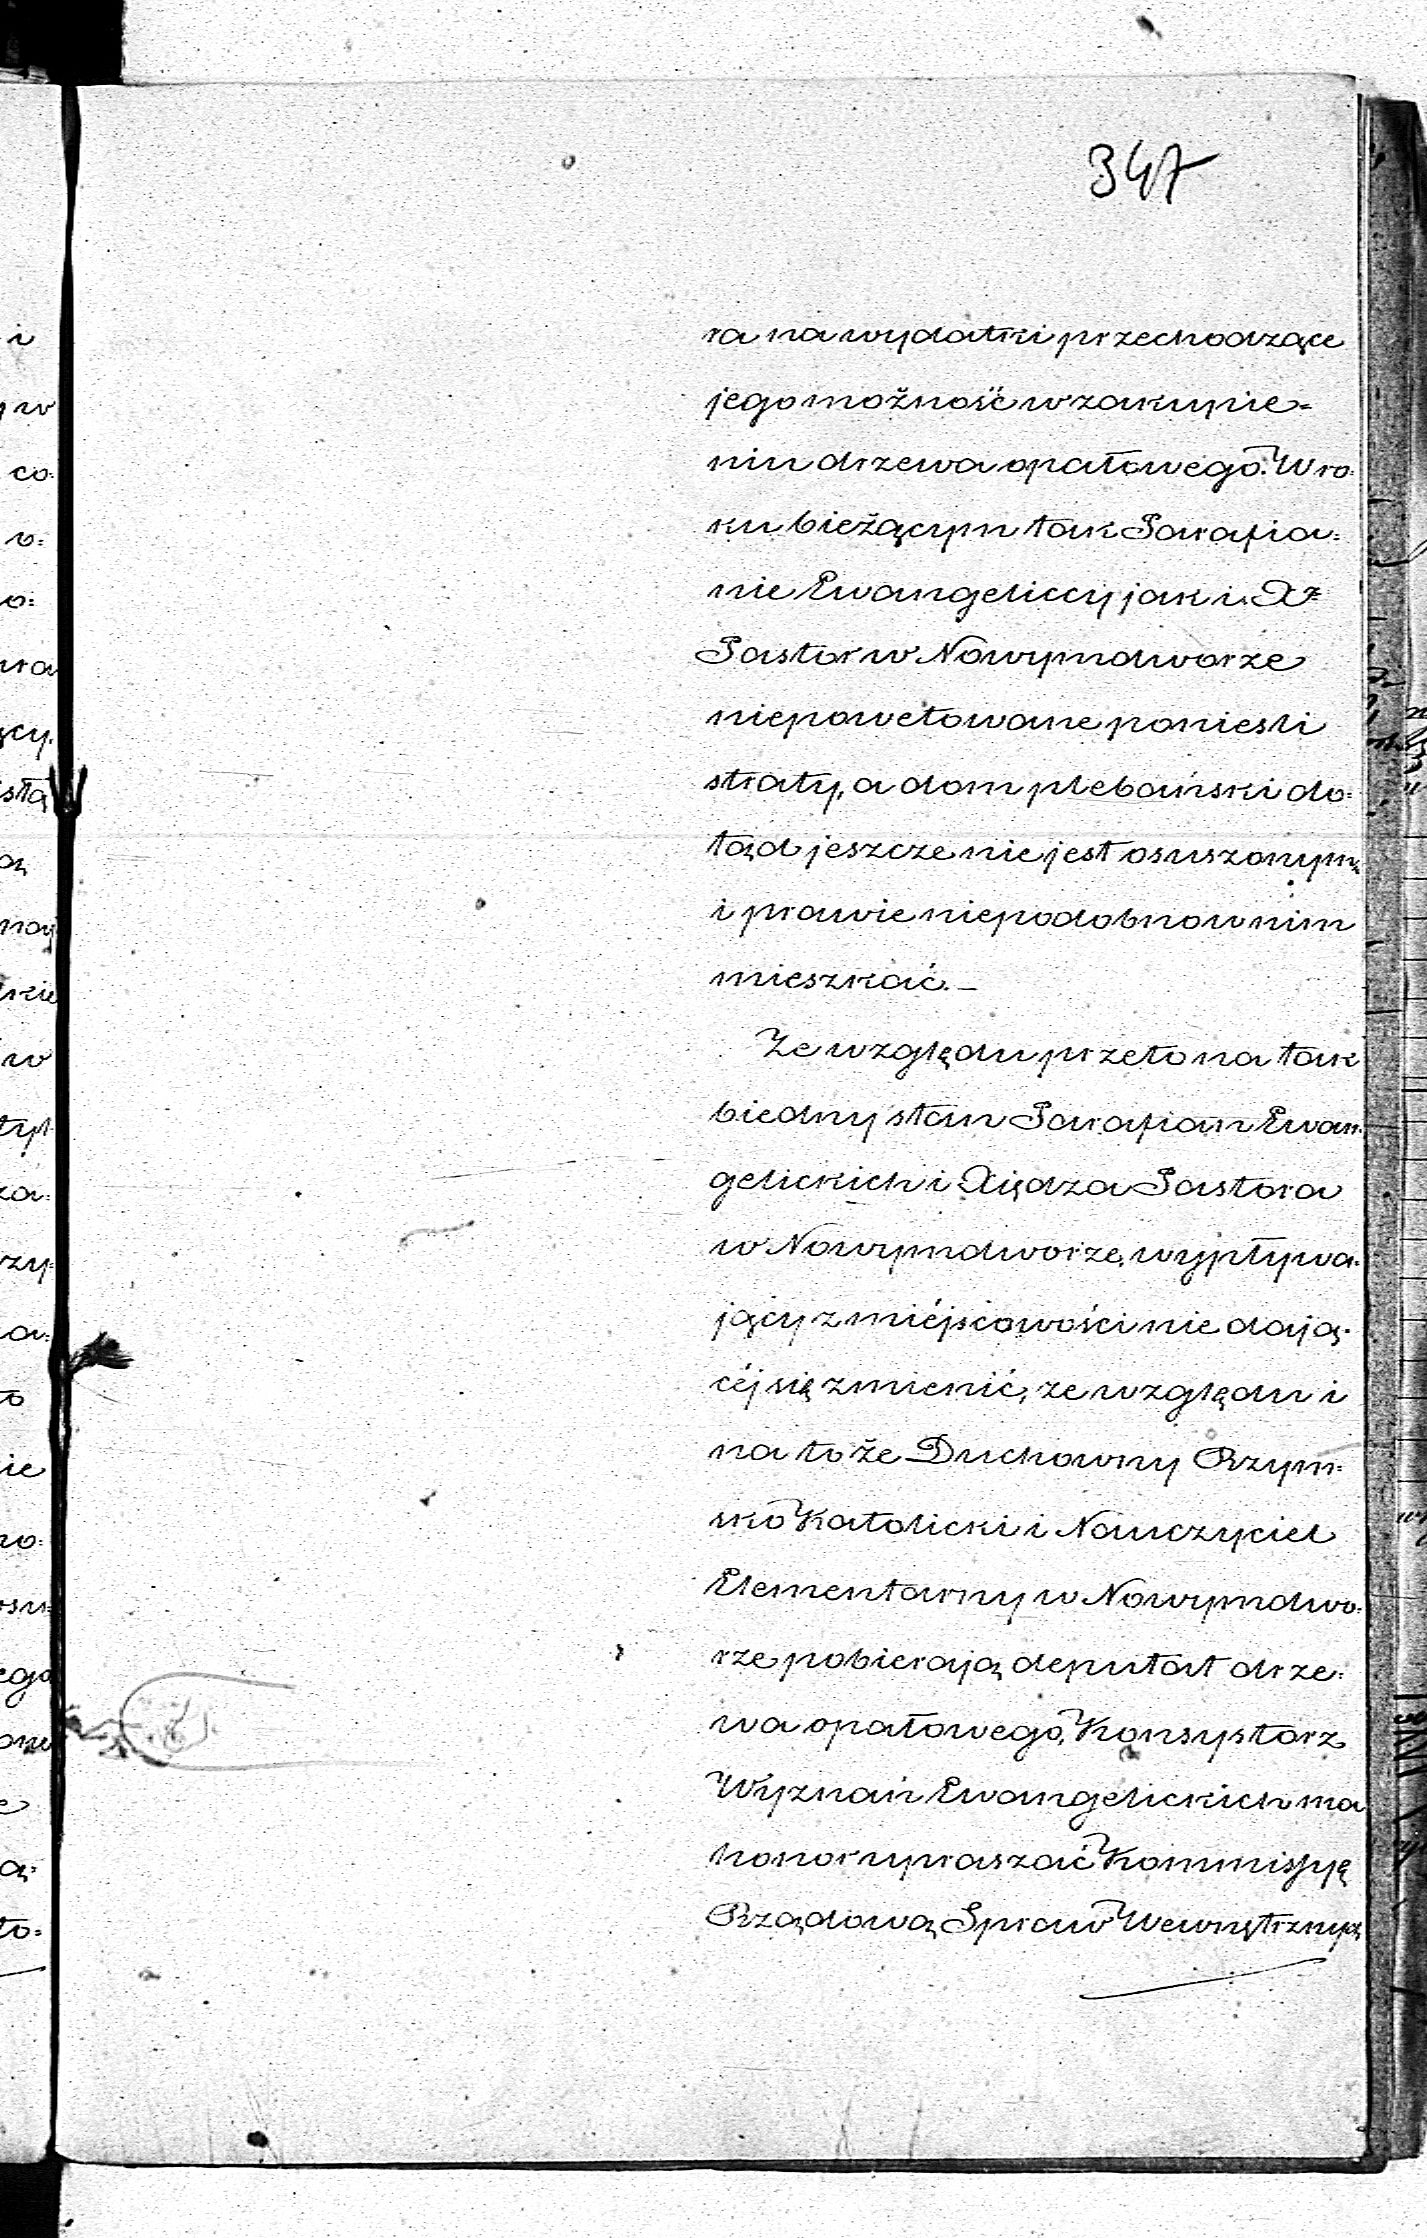 347
ra na wydatki przechodzące
jego możność w zakupie=
niu drzewa opałowego. W ro=
ku bieżącym tak Parafia=
nie Ewangeliccy jak i Xz
Pastor w Nowymdworze
niepowetowane ponieśli
straty, a dom plebański do=
tąd jeszcze nie jest osuszonym,
i prawie niepodobno w nim
mieszkać.–
Ze względu przeto na tak
biedny stan Parafian Ewan=
gelickich i Xiędza Pastora
w Nowymdworze, wypływa=
jący z miéjscowości nie dają=
céj się zmienić, ze względu i
na to że Duchowny Rzym=
sko Katolicki i Nauczyciel
Elementarny w Nowymdwo=
rze pobierają deputat drze=
wa opałowego, Konsystorz
Wyznań Ewangelickich ma
honor upraszać Kommissyą
Rządową Spraw Wewnętrznych